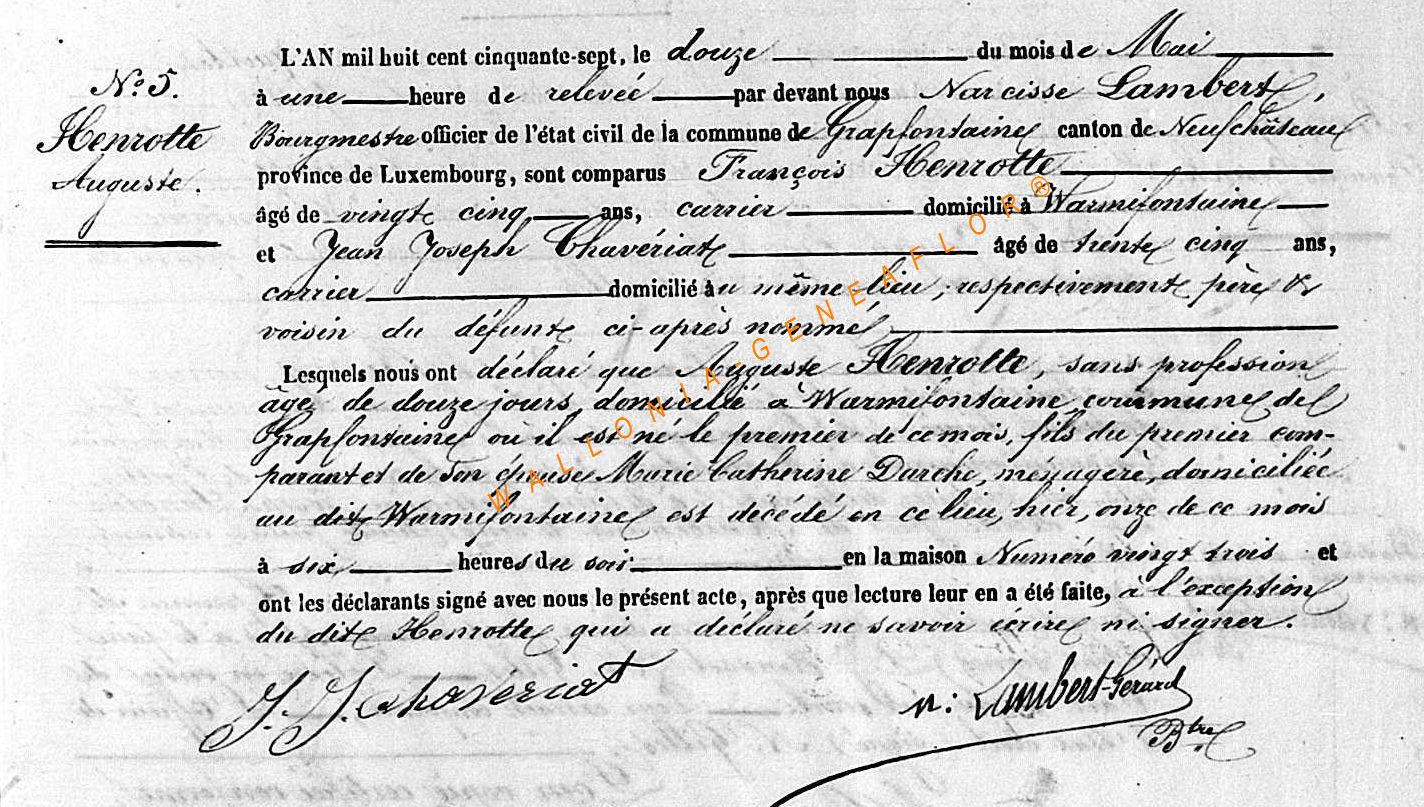 N.o 5.
Henrotte
Auguste.
L'AN mil huit cent cinquante-sept, le douze du mois de Mai
à une heure de relevée par devant nous Narcisse Lambert,
Bourgmestre officier de l'état civil de la commune de Grapfontaine canton de Neufchâteau
province de Luxembourg, sont comparus François Henrotte
âgé de vingt cinq ans, carrier domicilié à Warmifontaine
et Jean Joseph Chavériat âgé de trente cinq ans,
carrier domicilié au même lieu, respectivement père &
voisin du défunt ci-après nommé,
Lesquels nous ont déclaré que Auguste Henrotte, sans profession
âgé de douze jours, domicilié à Warmifontaine, commune de
Grapfontaine où il est né le premier de ce mois, fils du premier com-
parant et de son épouse Marie Catherine Darche, ménagère, domiciliée
au dit Warmifontaine est décédé en ce lieu, hier, onze de ce mois
à six heures du soir en la maison Numéro vingt trois et
ont les déclarants signé avec nous le présent acte, après que lecture leur en a été faite, à l'exception
du dit Henrotte qui a déclaré ne savoir écrire ni signer.
J. J. Chavériat
n: Lambert-Gérard
Btre
WALLONIA-GENEAFLOR®